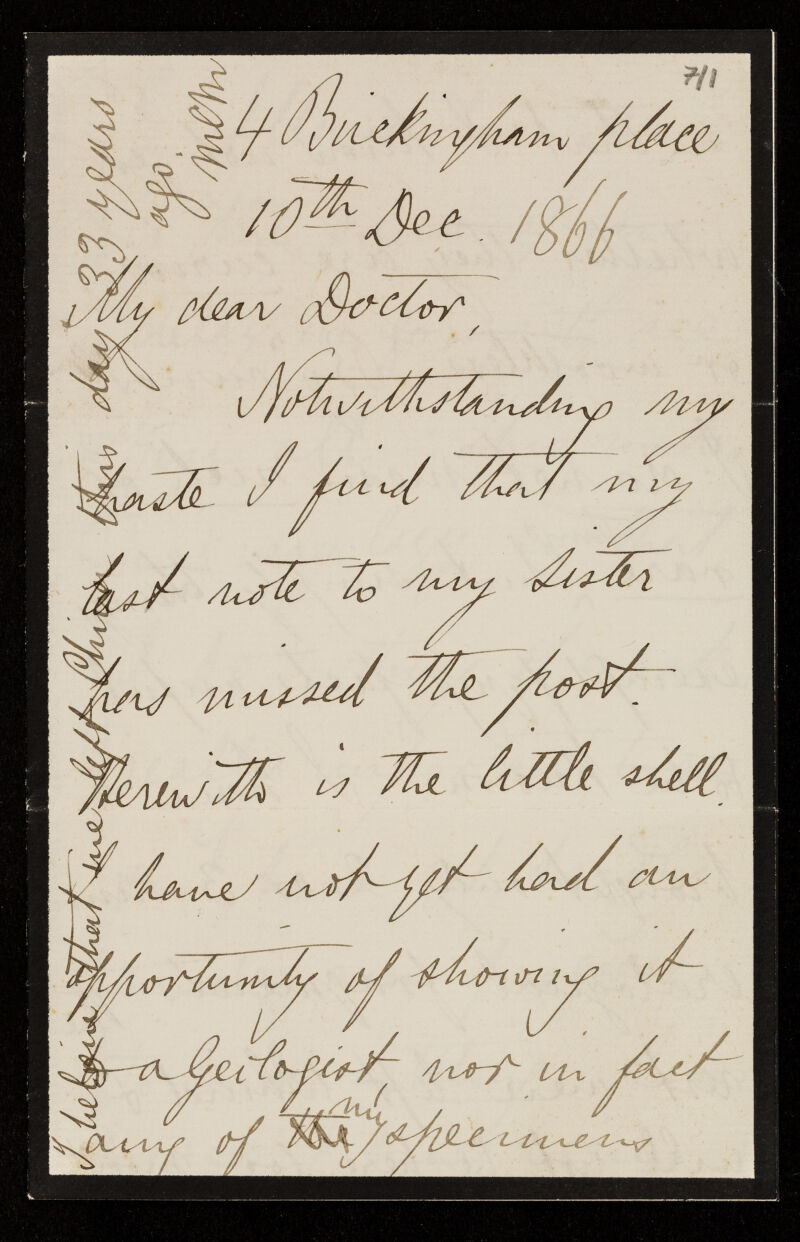 7/1
4 Buckingham place
10th Dec. 1866
My dear Doctor,
Notwithstanding my
haste I find that my
last note to my sister
has missed the post.
Herewith is the little shell.
I have not yet had an
opportunity of showing it
to a Geologist, nor in fact
any of the my specimens
I believe that we left China this day 33 years
ago.
MCM